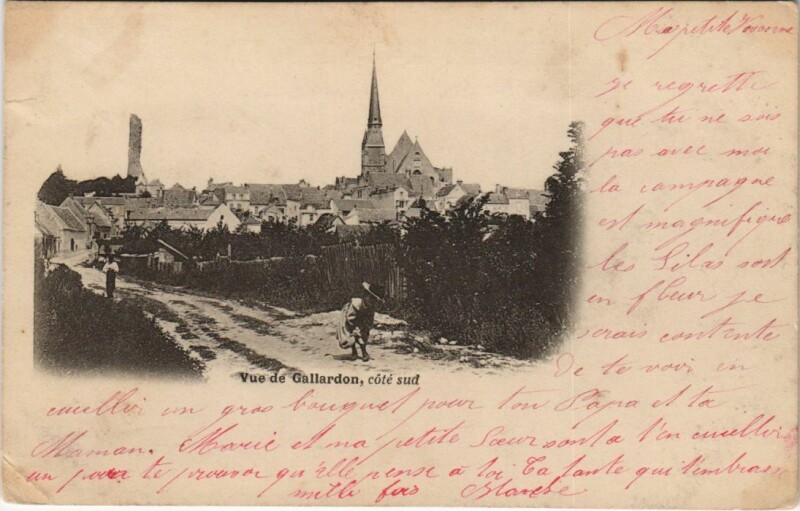 Ma petite Yvonne
je regrette
que tu ne sois
pas avec moi
la campagne
est magnifique
les Lilas sont
en fleur je
serais contente
de te voir en
Vue de Gallardon, côté sud
cueillir un gros bouquet pour ton Papa et ta
Maman. Marie et ma petite Sœur sont a t'en cueillir
un pour te prouver qu'elle pense a toi Ta tante qui t'embrasse
mille fois Blanche